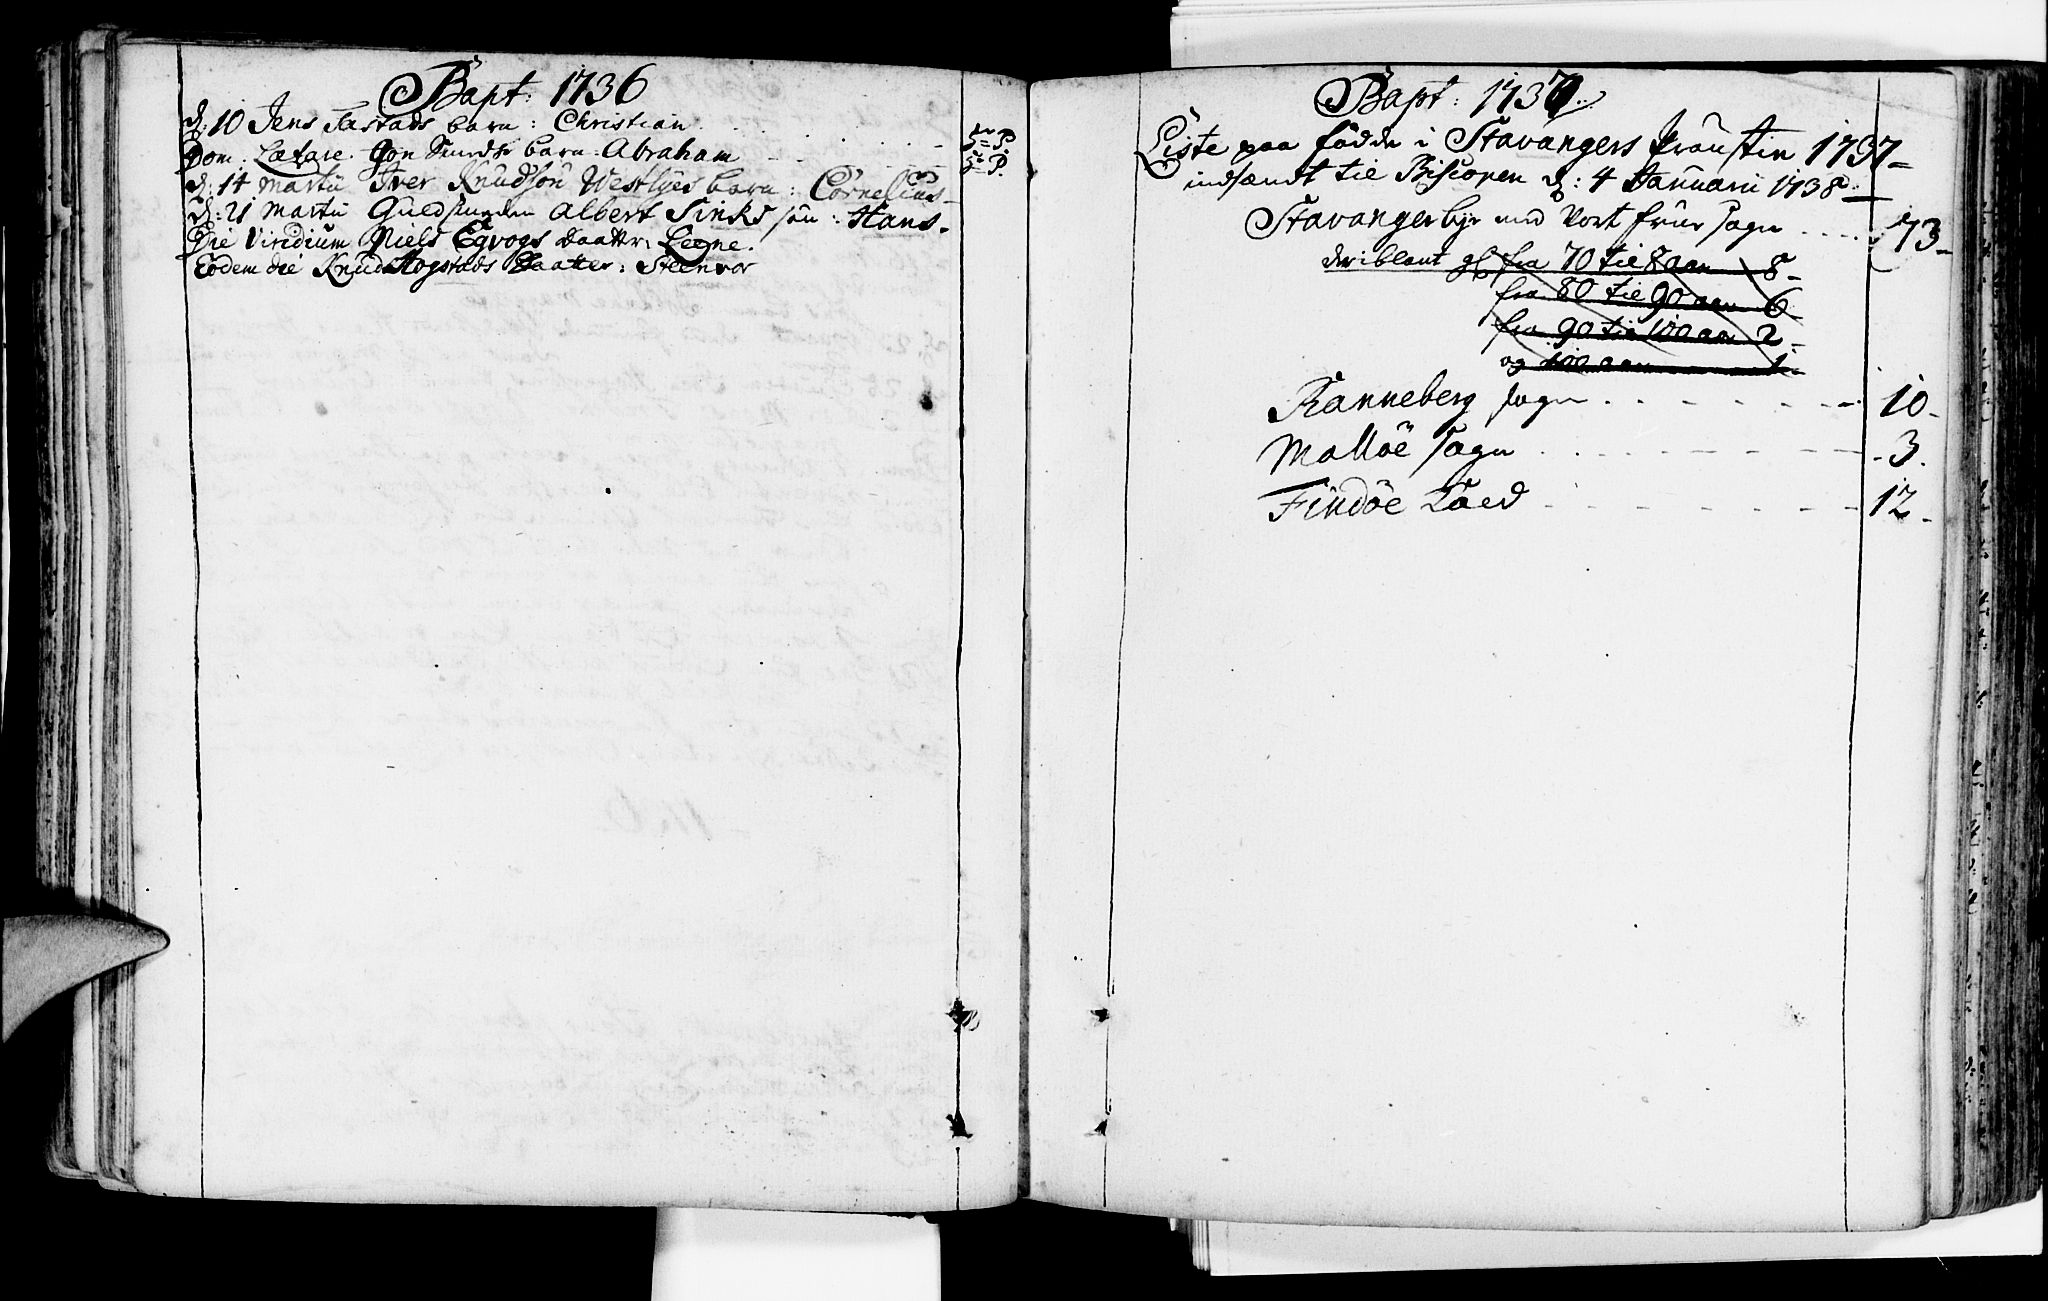 Bapt: 1736
d: 10 Jens Tastads barn: Christian
Dom. Lætare. Jon Smeds barn: Abraham
d: 14 Martii Iver Knudsøn Westlyes barn: Cornelius
d: 21 Martii Guldsmeden Albert Sinks søn: Hans.
Die Viridium Niels Egvogs daatter:
Eodem die Knud Mogstads Daatter: Steenvor
Bapt: 1737
Liste paa fødde i Stavangers Proustie 1737
indsændt til Biscopen d: 4 Januarii 1738.
Stavanger bye med Vort frue sogn .... 73
deriblant fra 70 til 80 aar 8
fra 80 til 90 aar 6
fra 90 til 100 aar 2
og 100 aar 1
Ranneberg sogn . - - - - 10
Malløe sogn . - - - - 3.
Findøe Læd - - - - 12